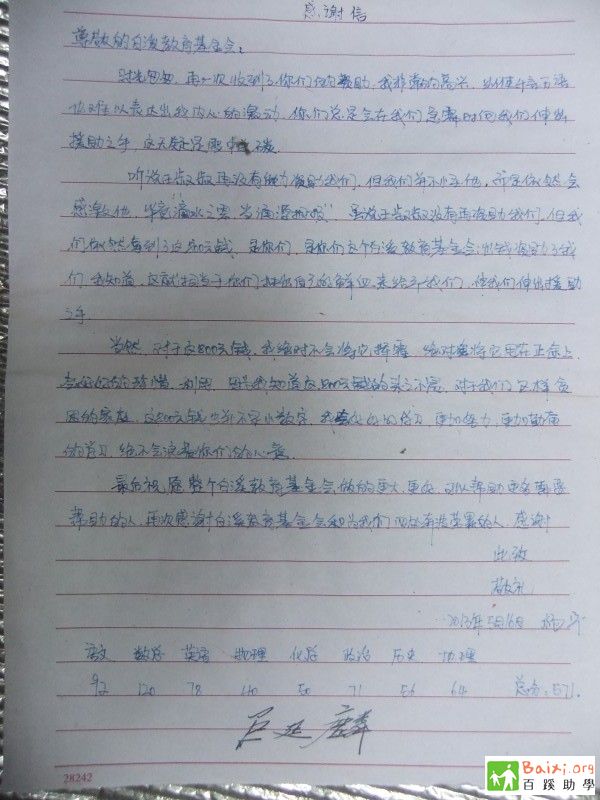 感谢信
尊敬的白溪教育基金会：
时光匆匆，再一次收到了你们的援助，我非常的高兴，当使千言万语
也难以表达出我内心的激动，你们总是会在我们急需时向我们伸出
援助之手，这无疑是雪中送碳.
听说于叔叔再没有能力资助我们，但我们并不怪他，而是依然会
感激他，毕竟"滴水之恩，当涌泉相报"虽说于叔叔没有再资助我们，但我
们依然拿到了这800元钱，是你们，是你们这个白溪教育基金会出钱资助了我
们，我知道，这就相当于你们 来给予我们，使我们伸出援助
之手
当然，对于这800元钱，我绝对不会将它挥霍，绝对会将它用在正命上
去好好的珍惜、利用，因为我知道这800元钱的来之不易，对于我们这样贫
困的家庭，这800元钱也并不是小数字，我会好好的学习，更加努力，更加勤奋
的学习，绝不会浪费你们的心意.
最后祝愿整个白溪教育基金会做的更大，更好，可以帮助更多需要
帮助的人，再次感谢白溪教育基金会和为我们 的人，感谢
此致
敬礼
2013年5月16日
语文 数学 英语 物理 化学 政治 历史 地理
92 120 78 40 50 71 56 64 总分：571.
28242
Baixi.org
百蹊助學